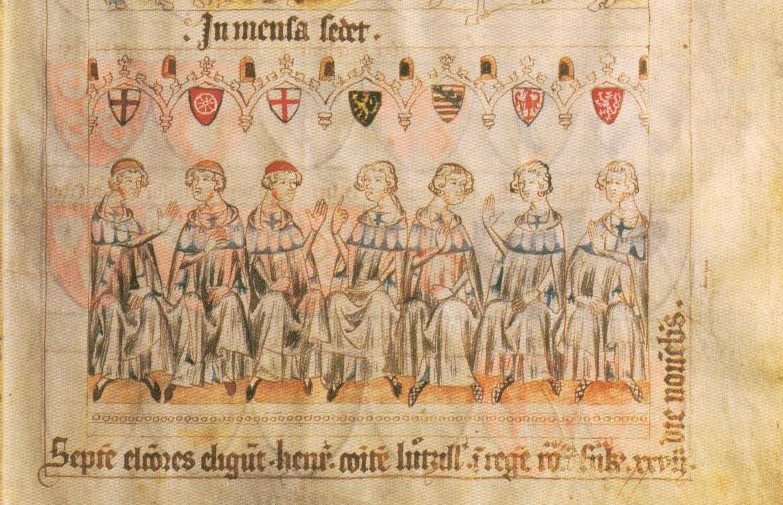 . In mensa sedet .
Septē elc̄ores eligūt . henr̄ . coītē lu̅tzill' . ī regē ro . xxvij .
die nouēbis .